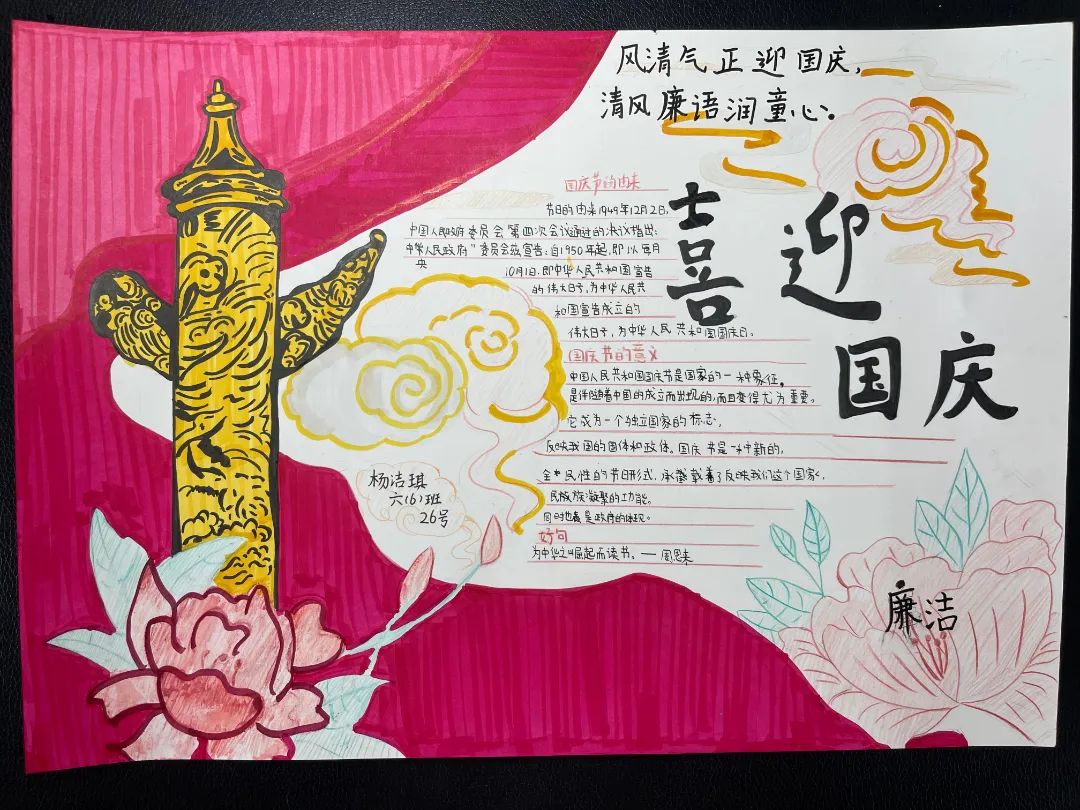 风清气正迎国庆，
清风廉语润童心。
喜迎
国庆
国庆节的由来
节日的由来1949年12月2日，
中国人民政府委员会第四次会议通过的决议指出：
中华人民政府"委员会兹宣告：自1950年起，即以每月
央
10月1日，即中华人民共和国宣告
的伟大日子，为中华人民共
和国宣告成立的
伟大日子，为中华人民共和国国庆日。
国庆节的意义
中国人民共和国国庆节是国家的一种象征。
是伴随着中国的成立而出现的，而且变得尤为重要。
它成为一个独立国家的标志，
反映我国的国体和政体。国庆节是一种新的，
全民性的节日形式，承载着了反映我们这个国家，
民族凝聚的功能，
同时也是政府的体现。
好句
为中华之崛起而读书。——周恩来
杨洁琪
六(6)班
26号
廉洁